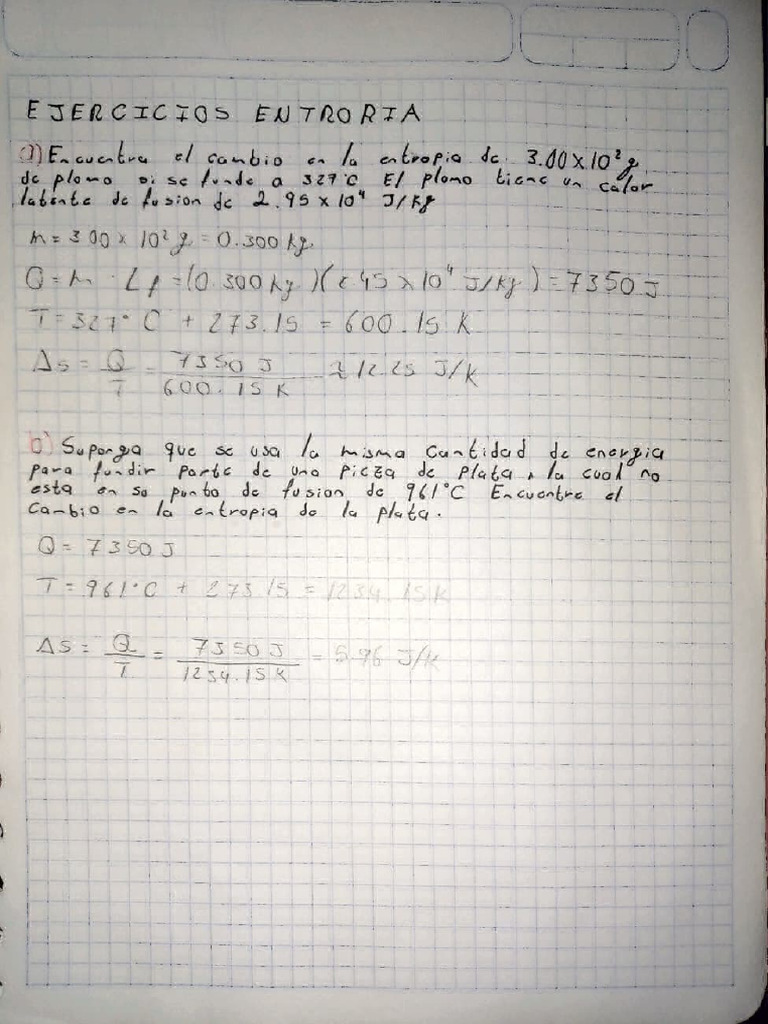 EJERCICIOS ENTRORIA
a) Encuentra el cambio en la entropia de 3.00 x 10² g
de plomo si se funde a 327°C El plomo tiene un calor
latente de fusion de 2.95 x 10⁴ J/kg
m = 3.00 x 10² g = 0.300 kg
Q = m · Lf = (0.300 kg)(2.45 x 10⁴ J/kg) = 7350 J
T = 327°C + 273.15 = 600.15 K
Δs = Q/T = 7350 J / 600.15 K ≈ 12.25 J/K
b) Suponga que se usa la misma cantidad de energia
para fundir parte de una pieza de plata, la cual no
esta en su punto de fusion de 961°C Encuentre el
Cambio en la entropia de la plata.
Q = 7350 J
T = 961°C + 273.15 = 1234.15 K
ΔS = Q/T = 7350 J / 1234.15 K = 5.96 J/K